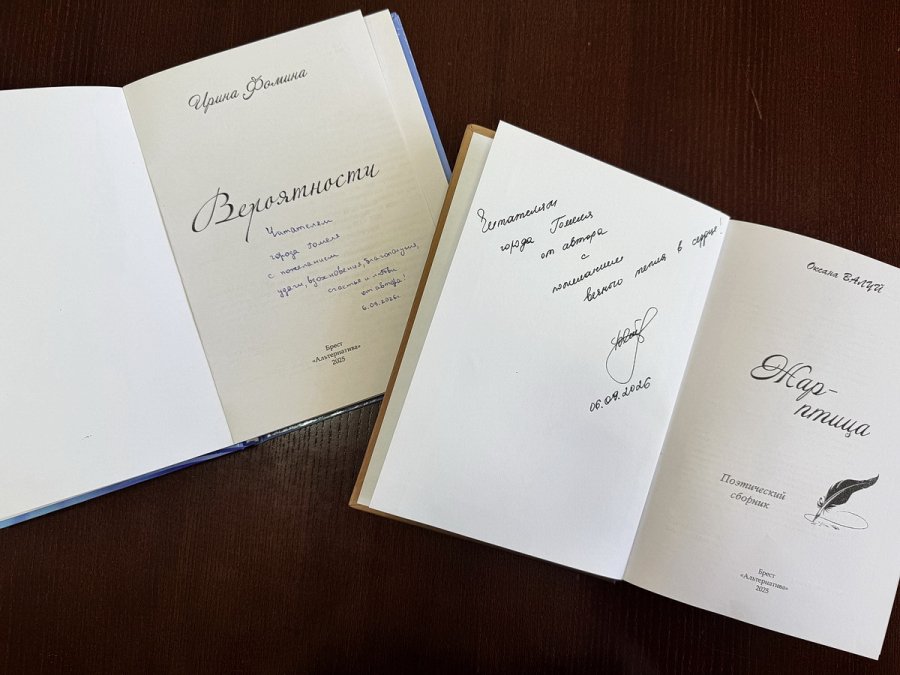 Ирина Фомина
Вероятности
Читателем
города Гомеля
с пожеланием
удачи, вдохновения, благополучия,
счастья и любви
от автора!
6.09.2026г.
Брест
«Альтернатива»
2025
Читателям
города Гомеля
от автора
с
пожеланием
вечного тепла в сердце!
06.09.2026
Оксана ВАЛУЙ
Жар-
птица
Поэтический
сборник
Брест
«Альтернатива»
2025